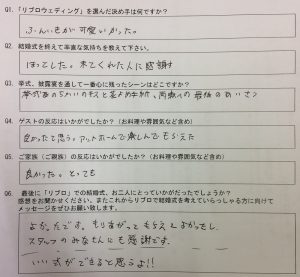 Q1.「リブロウェディング」を選んだ決め手は何ですか?
ふんいきが可愛いかった。
Q2. 結婚式を終えて率直な気持ちを教えて下さい。
ほっとした。来てくれた人に感謝す
Q3. 挙式、披露宴を通して一番心に残ったシーンはどこですか?
挙式のちかいのキスと
両親への最後のあいさつ
Q4. ゲストの反応はいかがでしたか?(お料理や雰囲気など含め)
良かったと思う。アットホームで楽しんでもらえた
Q5. ご家族(ご親族)の反応はいかがでしたか?(お料理や雰囲気など含め)
良かった。とっても
Q6. 最後に「リブロ」での結婚式、お二人にとっていかがだったでしょうか?
感想をお聞かせください。またこれからリブロで結婚式を考えていらっしゃる方に向けて
メッセージをぜひお願い致します。
よかったです。もりあがってもらえてよかったし、
スタッフのみなさんにも感謝です。
いい式ができると思うよ!!